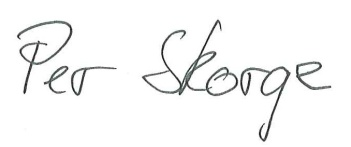 Per Skorge